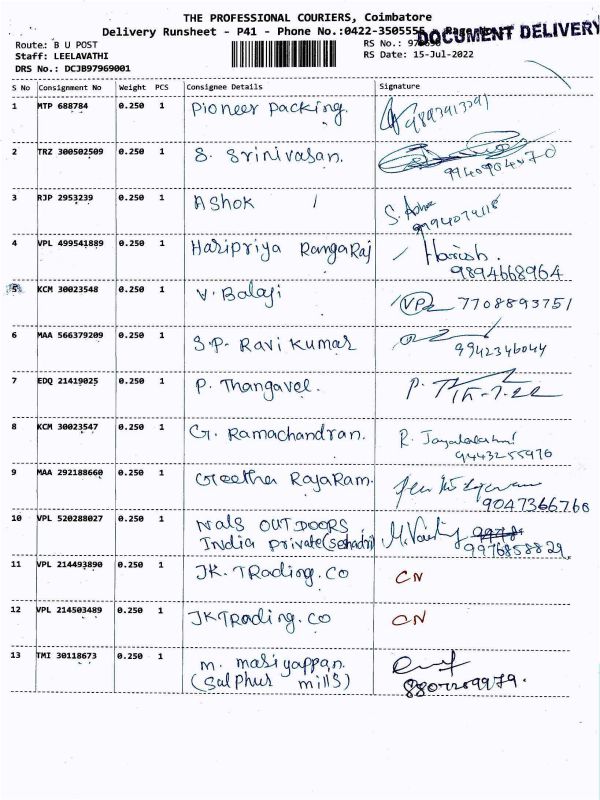 THE PROFESSIONAL COURIERS, Coimbatore
Delivery Runsheet - P41 - Phone No.:0422-3505555
DOCUMENT DELIVERY
Route: B U POST
RS No.:
Staff: LEELAVATHI
RS Date: 15-Jul-2022
DRS No.: DCJB97969001
S No Consignment No Weight PCS Consignee Details Signature
1 MTP 688784 0.250 1 Pioneer Packing. 9893913291
2 TRZ 300502509 0.250 1 S. Srinivasan.
3 RJP 2953239 0.250 1 Ashok / S. Ashok
4 VPL 499541889 0.250 1 Haripriya RangaRaj / Harish.
9894668964
5 KCM 30023548 0.250 1 V. Balaji VP 7708893751
6 MAA 566379209 0.250 1 S.P. Ravi Kumar 9942346044
7 EDQ 21419025 0.250 1 P. Thangavel.
8 KCM 30023547 0.250 1 G. Ramachandran. R. Jayalakshmi
9443255976
9 MAA 292188660 0.250 1 Geetha RajaRam.
9047366766
10 VPL 520288027 0.250 1 Nals OUTDOORS
India private (Seshadri) 9976858829
11 VPL 214493890 0.250 1 JK. TRading. co CN
12 VPL 214503489 0.250 1 JK TRading. co CN
13 TMI 30118673 0.250 1 m. masiyappan.
(Salphur mills) 8807209979.